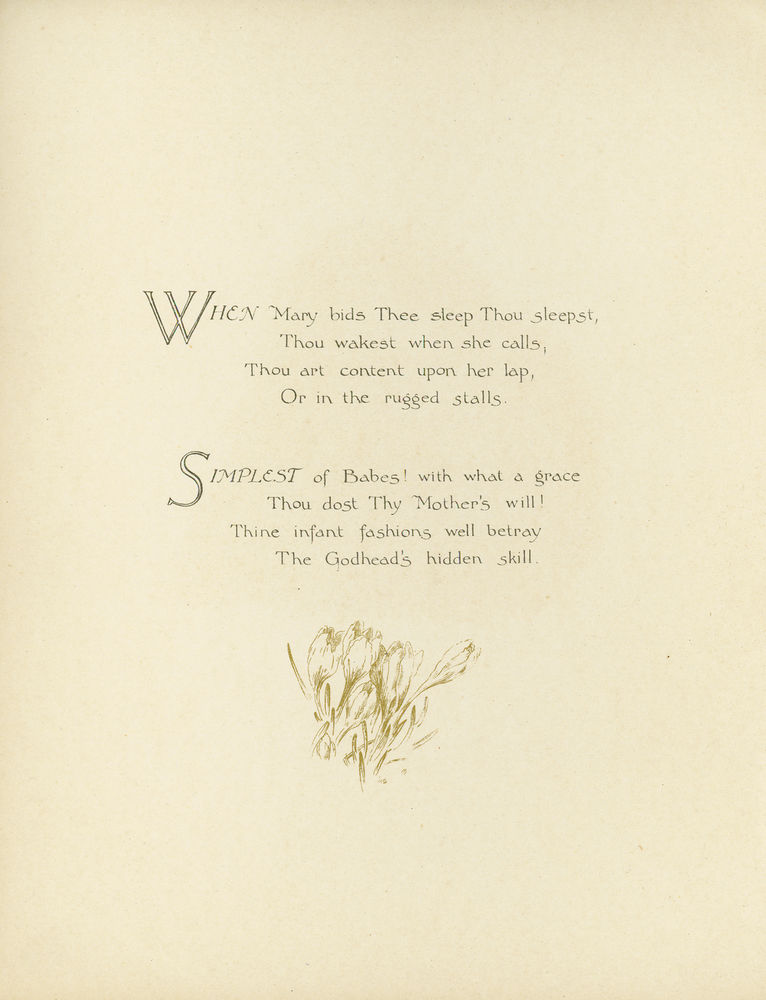 WHEN Mary bids Thee sleep Thou sleepst,
Thou wakest when she calls;
Thou art content upon her lap,
Or in the rugged stalls.
SIMPLEST of Babes! with what a grace
Thou dost Thy Mother's will!
Thine infant fashions well betray
The Godhead's hidden skill.